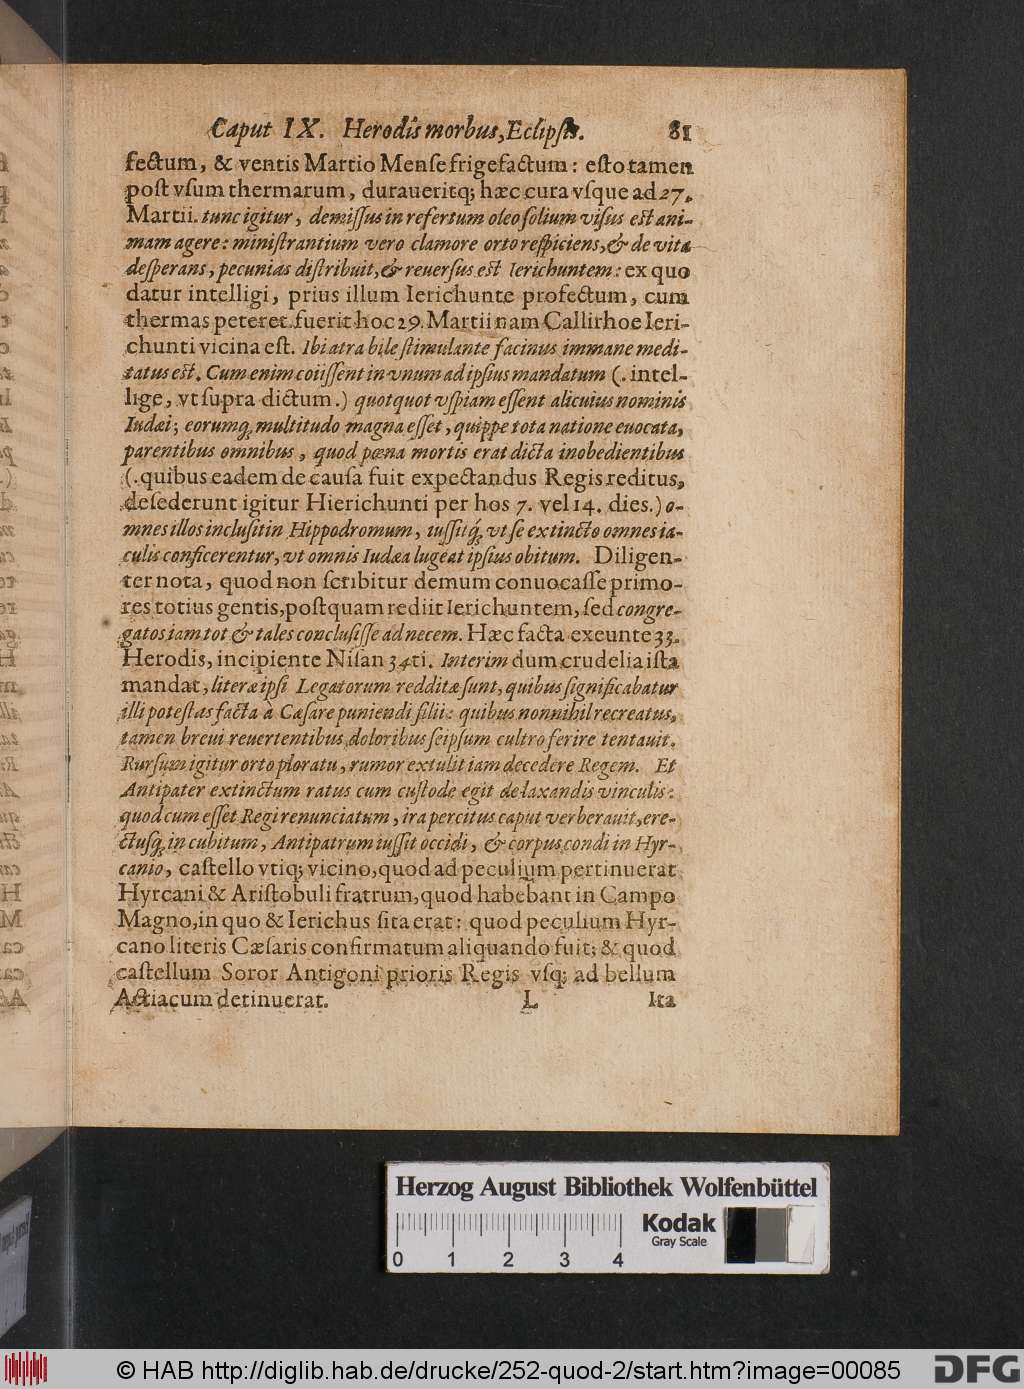 Caput IX. Herodis morbus, Eclipſis. 81
fectum, & ventis Martio Menſe frigefactum: eſto tamen
poſt vſum thermarum, duraueritq; hæc cura vſque ad 27.
Martii. tunc igitur, demiſſus in refertum oleo ſolium viſus eſt ani-
mam agere: miniſtrantium vero clamore orto reſpiciens, & de vita
deſperans, pecunias diſtribuit, & reuerſus eſt Ierichuntem: ex quo
datur intelligi, prius illum Ierichunte profectum, cum
thermas peteret. fuerit hoc 29. Martii nam Callirhoe Ieri-
chunti vicina eſt. Ibi atra bile ſtimulante facinus immane medi-
tatus eſt. Cum enim coiiſſent in vnum ad ipſius mandatum (. intel-
lige, vt ſupra dictum.) quotquot vſpiam eſſent alicuius nominis
Iudæi; eorumq; multitudo magna eſſet, quippe tota natione euocata,
parentibus omnibus, quod pœna mortis erat dicta inobedientibus
(. quibus eadem de cauſa fuit expectandus Regis reditus,
deſederunt igitur Hierichunti per hos 7. vel 14. dies.) o-
mnes illos incluſit in Hippodromum, iuſſitq; vt ſe extincto omnes ia-
culis conficerentur, vt omnis Iudæa lugeat ipſius obitum. Diligen-
ter nota, quod non ſcribitur demum conuocaſſe primo-
res totius gentis, poſtquam rediit Ierichuntem, ſed congre-
gatos iam tot & tales concluſiſſe ad necem. Hæc facta exeunte 33.
Herodis, incipiente Niſan 34ti. Interim dum crudelia iſta
mandat, literæ ipſi Legatorum redditæ ſunt, quibus ſignificabatur
illi poteſtas facta à Cæſare puniendi filii: quibus nonnihil recreatus,
tamen breui reuertentibus doloribus ſeipſum cultro ferire tentauit.
Rurſum igitur orto ploratu, rumor extulit iam decedere Regem. Et
Antipater extinctum ratus cum cuſtode egit de laxandis vinculis:
quod cum eſſet Regi renunciatum, ira percitus caput verberauit, ere-
ctuſq; in cubitum, Antipatrum iuſſit occidi, & corpus condi in Hyr-
canio, caſtello vtiq; vicino, quod ad peculium pertinuerat
Hyrcani & Ariſtobuli fratrum, quod habebant in Campo
Magno, in quo & Ierichus ſita erat: quod peculium Hyr-
cano literis Cæſaris confirmatum aliquando fuit; & quod
caſtellum Soror Antigoni prioris Regis vſq; ad bellum
Actiacum detinuerat. L Ita
Herzog August Bibliothek Wolfenbüttel
Kodak
Gray Scale
0 1 2 3 4
© HAB http://diglib.hab.de/drucke/252-quod-2/start.htm?image=00085
DFG